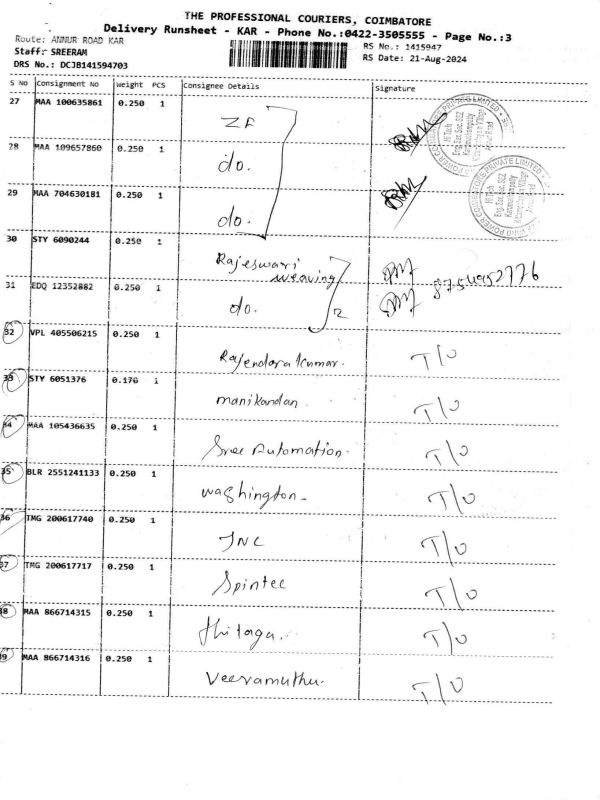 THE PROFESSIONAL COURIERS, COIMBATORE
Delivery Runsheet - KAR - Phone No.:0422-3505555 - Page No.:3
Route: ANNUR ROAD KAR
RS No.: 1415947
Staff: SREERAM
RS Date: 21-Aug-2024
DRS No.: DCJB141594703
S No Consignment No Weight PCS Consignee Details Signature
27 MAA 100635861 0.250 1 ZF
28 MAA 109657860 0.250 1 do.
29 MAA 704630181 0.250 1 do.
30 STY 6090244 0.250 1 Rajeswari weaving
31 EDQ 12352882 0.250 1 do. 2 8754952776
32 VPL 405506215 0.250 1 Rajendara kumar. T/O
33 STY 6051376 0.170 1 manikandan T/O
34 MAA 105436635 0.250 1 Sree Automation. T/O
35 BLR 2551241133 0.250 1 washington. T/O
36 TMG 200617740 0.250 1 JNC T/O
37 TMG 200617717 0.250 1 Spintec T/O
38 MAA 866714315 0.250 1 T/O
39 MAA 866714316 0.250 1 Veeramuthu. T/O